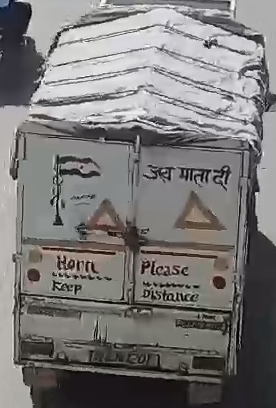 जय माता दी
Horn Please
Keep Distance